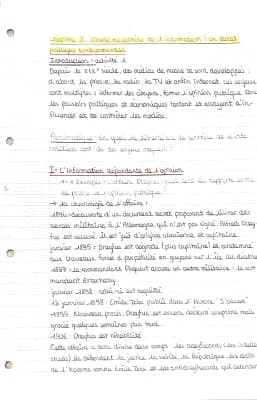 Chapitre 2. Liberté ou contrôle de l'information : un débat
politique fondamental
Introduction - activité 1
Depuis le XIXe siècle, des médias de masse se sont développés :
d'abord la presse, la radio, la TV et enfin Internet. Les enjeux
sont multiples : informer les citoyens, former l'opinion publique. Donc
les pouvoirs politiques et économiques tentent et essayent d'in-
fluencer et de contrôler les médias.
Problématique : En quoi la liberté ou le contrôle de l'info-
rmation sont-ils des enjeux majeurs ?
I - L'information dépendante de l'opinion
1-a Exemple : l'affaire Dreyfus
presse et l'opinion publique
→ la chronologie de l'affaire :
1894 : découverte d'un document secret proposant de livrer des
secrets militaires à l'Allemagne qui n'est pas signé. Alfred Drey-
fus est accusé. Il est juif d'origine alsacienne et capitaine.
janvier 1895 : Dreyfus est dégradé (plus capitaine) et condamné
aux travaux forcés à perpétuité en guyane sur l'île du diable
1897 : le commandant Picquart accuse un autre militaire : le com-
mandant Esterhazy.
janvier 1898 : celui-ci est acquitté
13 janvier 1898 : Emile Zola publie dans l'Aurore "J'accuse"
1899 : Nouveau procès, Dreyfus est encore déclaré coupable mais
gracié quelques semaines plus tard.
1906 : Dreyfus est réhabilité
Cette affaire a donc divisé deux camps : les dreyfusards (les intelle-
ctuels) ils défendent la justice, la vérité, la République, les droits
de l'homme comme Emile Zola et les antidreyfusards qui défendent